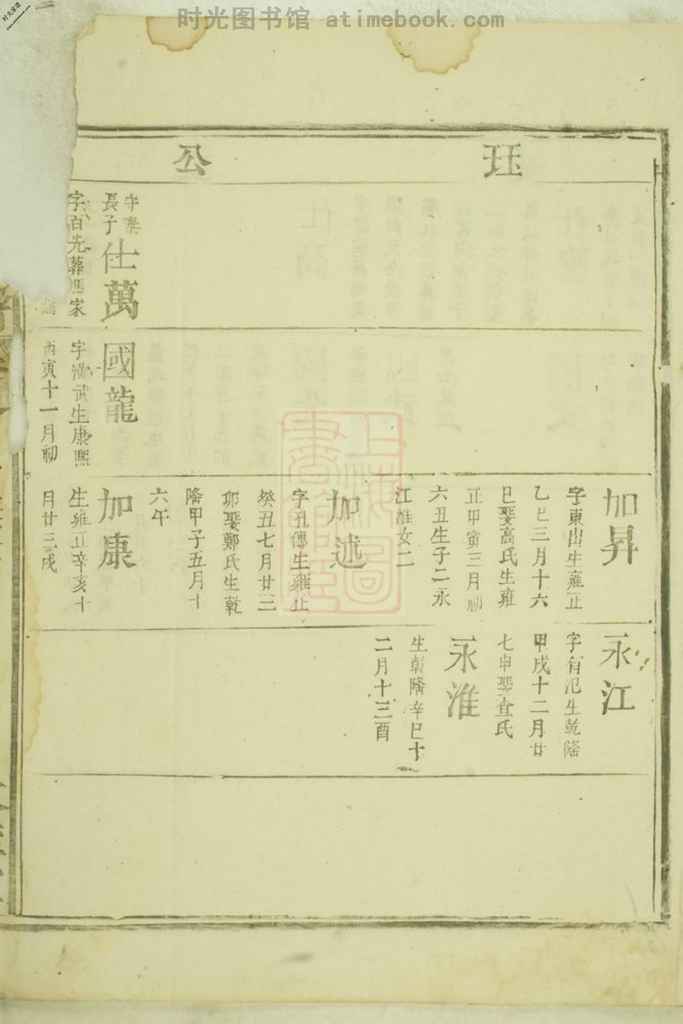 时光图书馆 atimebook.com
珏
公
長子
仕萬
字百先葬
國龍
生康熙
丙寅十一月初
加昇
字東山生雍正
乙巳三月十六
巳娶高氏生雍
正甲寅三月初
六丑生子二永
江淮女二
加述
字孔傳生雍正
癸丑七月廿三
卯娶鄭氏生乾
隆甲子五月十
六午
加康
生雍正辛亥十
月廿三戌
永江
生乾隆
甲戌十二月廿
七申娶查氏
永淮
生乾隆辛巳十
二月十三酉